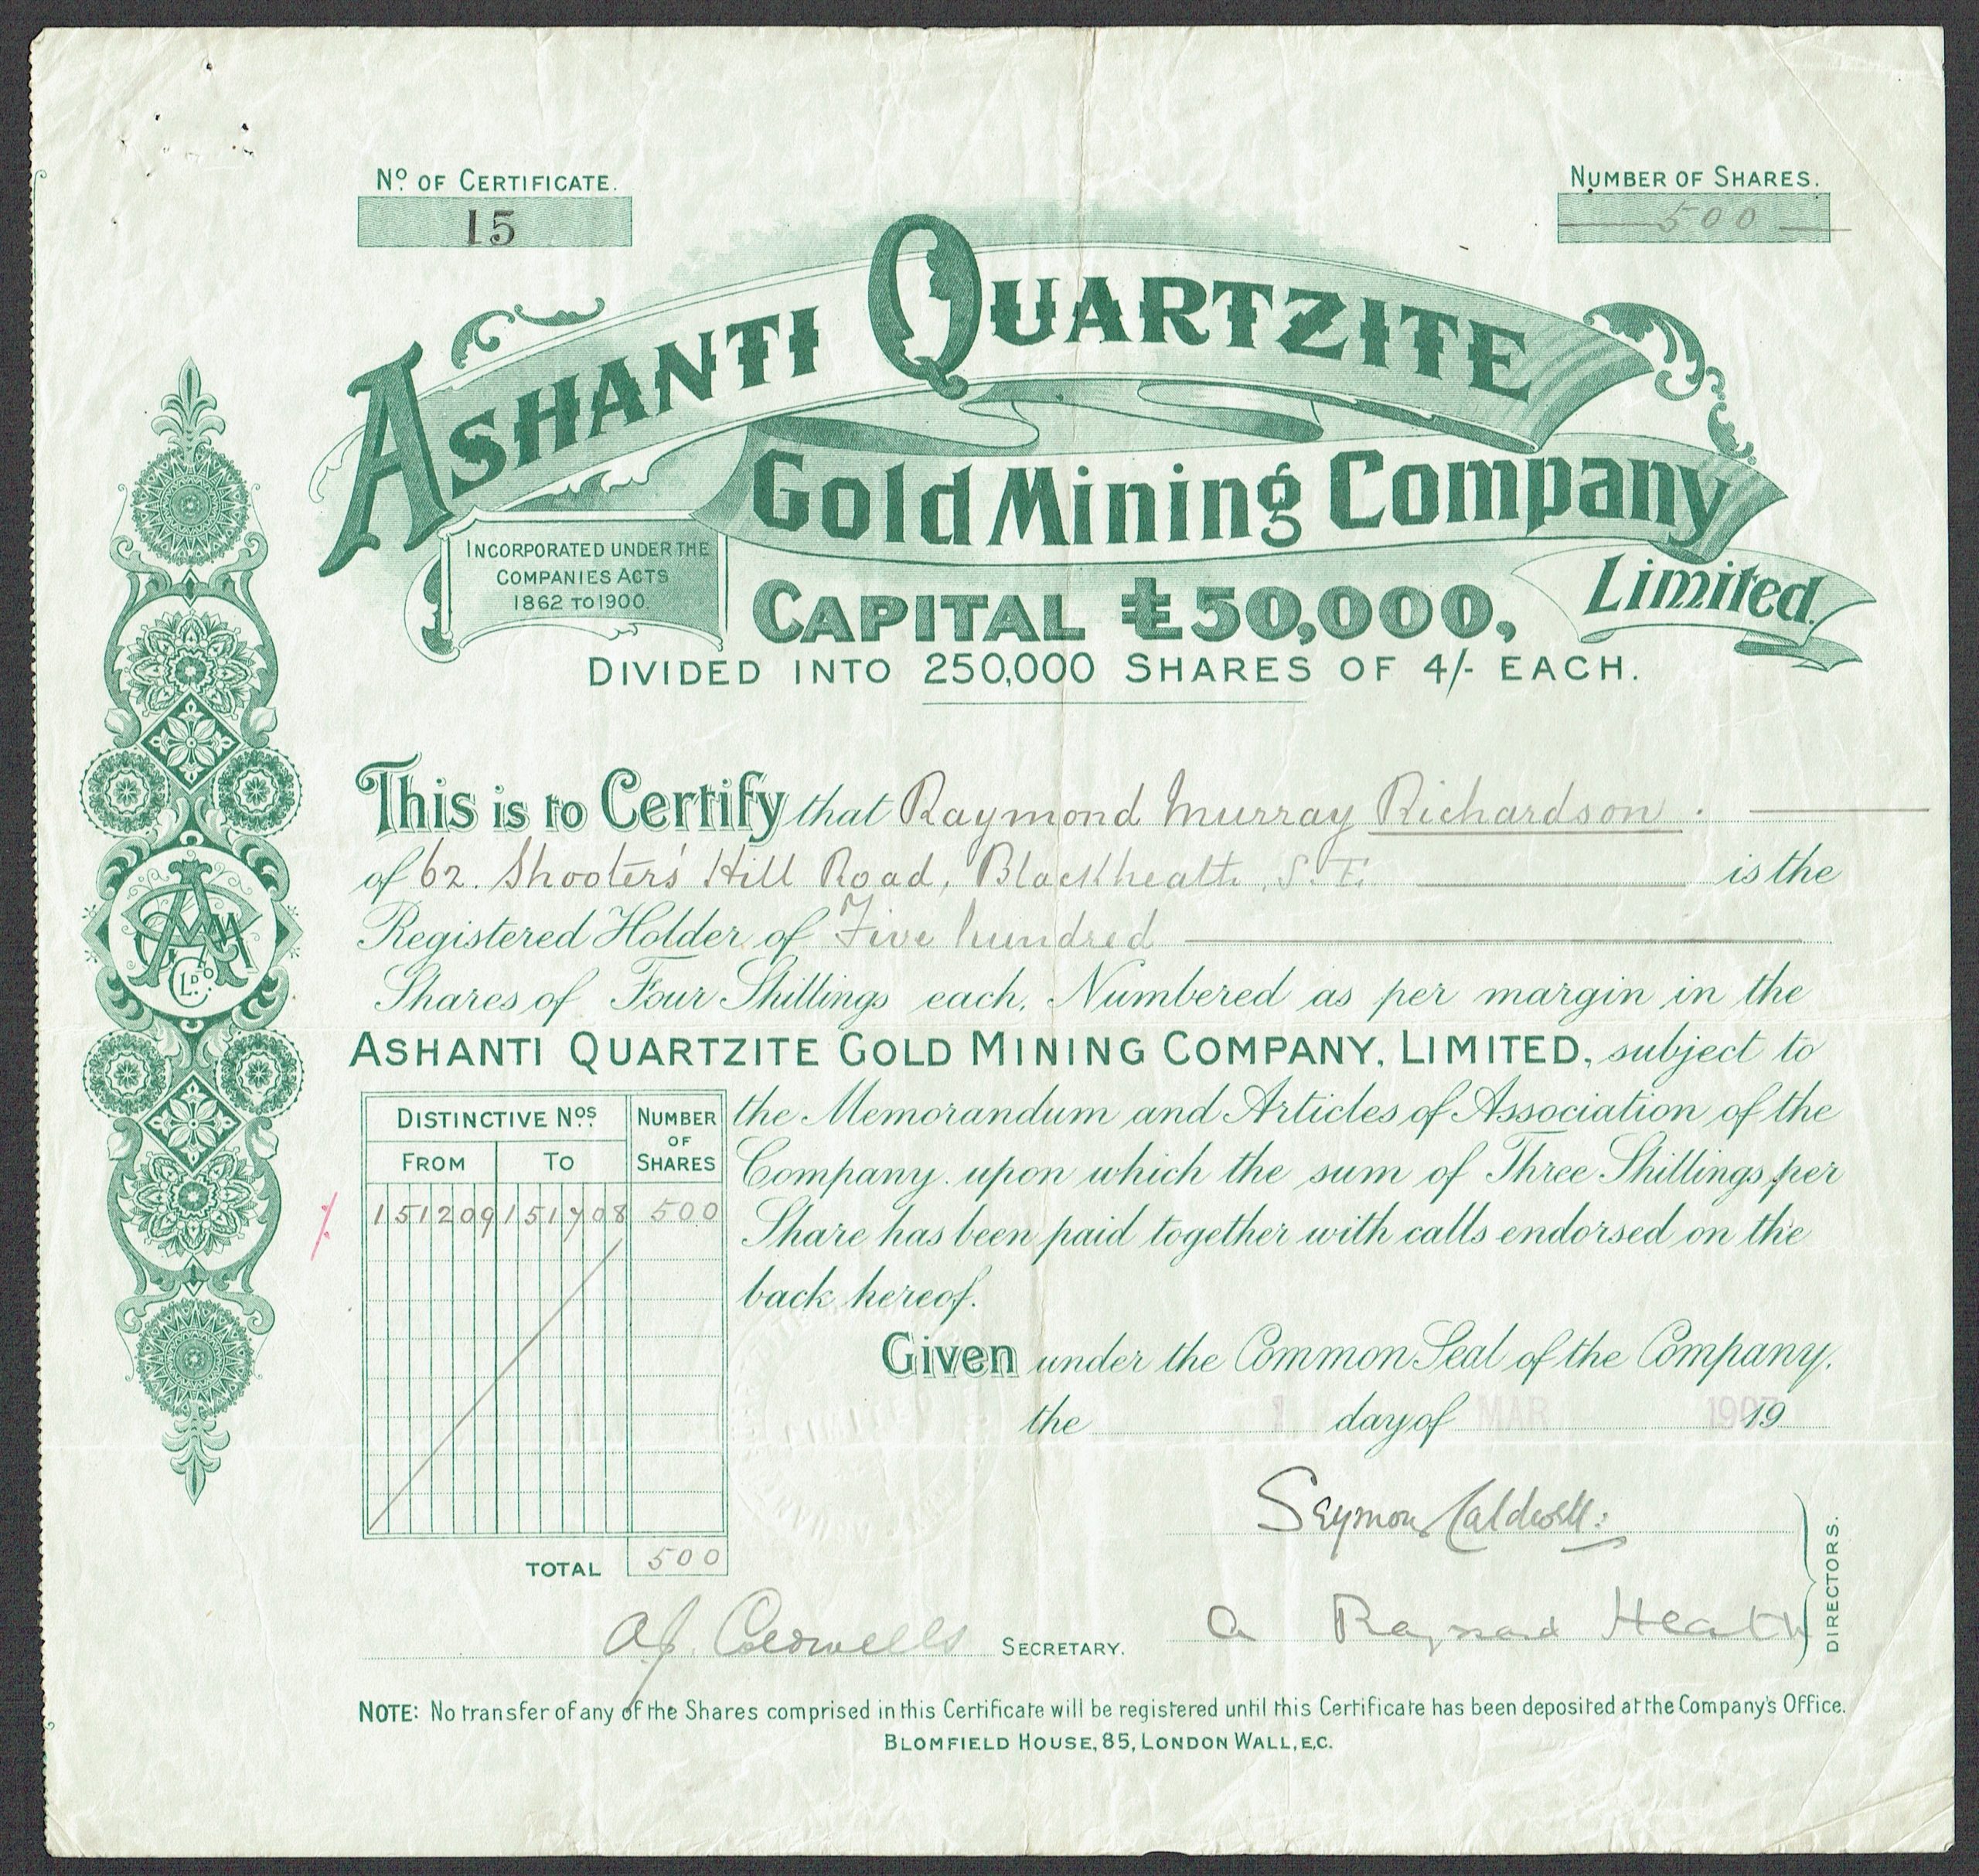 No. OF CERTIFICATE.
15
NUMBER OF SHARES.
500
ASHANTI QUARTZITE
Gold Mining Company
Limited.
INCORPORATED UNDER THE
COMPANIES ACTS
1862 TO 1900.
CAPITAL £50,000,
DIVIDED INTO 250,000 SHARES OF 4/- EACH.
This is to Certify that Raymond Murray Richardson.
of 62. Shooters' Hill Road, Blackheath, S.E. is the
Registered Holder of Five hundred
Shares of Four Shillings each, Numbered as per margin in the
ASHANTI QUARTZITE GOLD MINING COMPANY, LIMITED, subject to
the Memorandum and Articles of Association of the
Company upon which the sum of Three Shillings per
Share has been paid together with calls endorsed on the
back hereof.
DISTINCTIVE Nos.
NUMBER OF SHARES
FROM TO
151209 151708 500
TOTAL 500
Given under the Common Seal of the Company,
the 1 day of MAR 19
Seymour Caldwell
A Raynard Heath
DIRECTORS.
SECRETARY.
NOTE: No transfer of any of the Shares comprised in this Certificate will be registered until this Certificate has been deposited at the Company's Office.
BLOMFIELD HOUSE, 85, LONDON WALL, E.C.